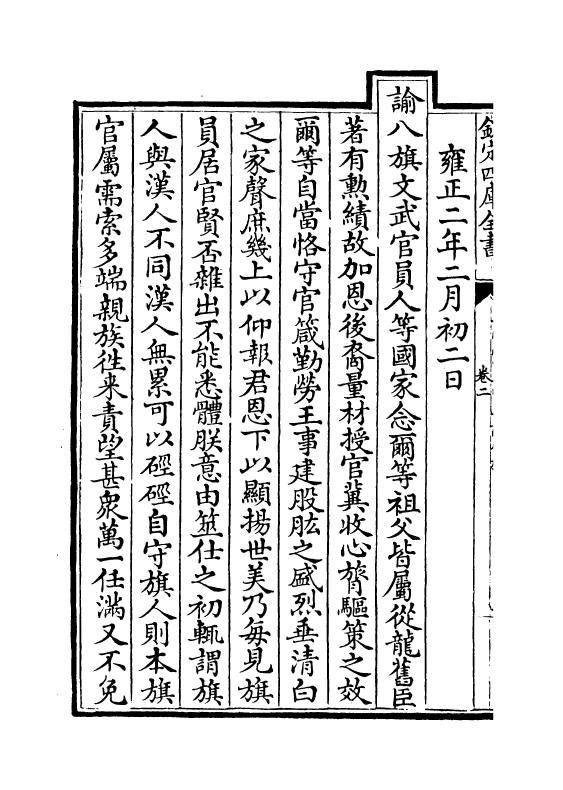 欽定四庫全書
卷二
雍正二年二月初二日
諭八旗文武官員人等國家念爾等祖父皆屬從龍舊臣
著有勲績故加恩後裔量材授官冀收心膂驅策之效
爾等自當恪守官箴勤勞王事建股肱之盛烈垂清白
之家聲庶幾上以仰報君恩下以顯揚世美乃每見旗
員居官賢否雜出不能悉體朕意由筮仕之初輒謂旗
人與漢人不同漢人無累可以硜硜自守旗人則本旗
官屬需索多端親族徃来責望甚衆萬一任滿又不免